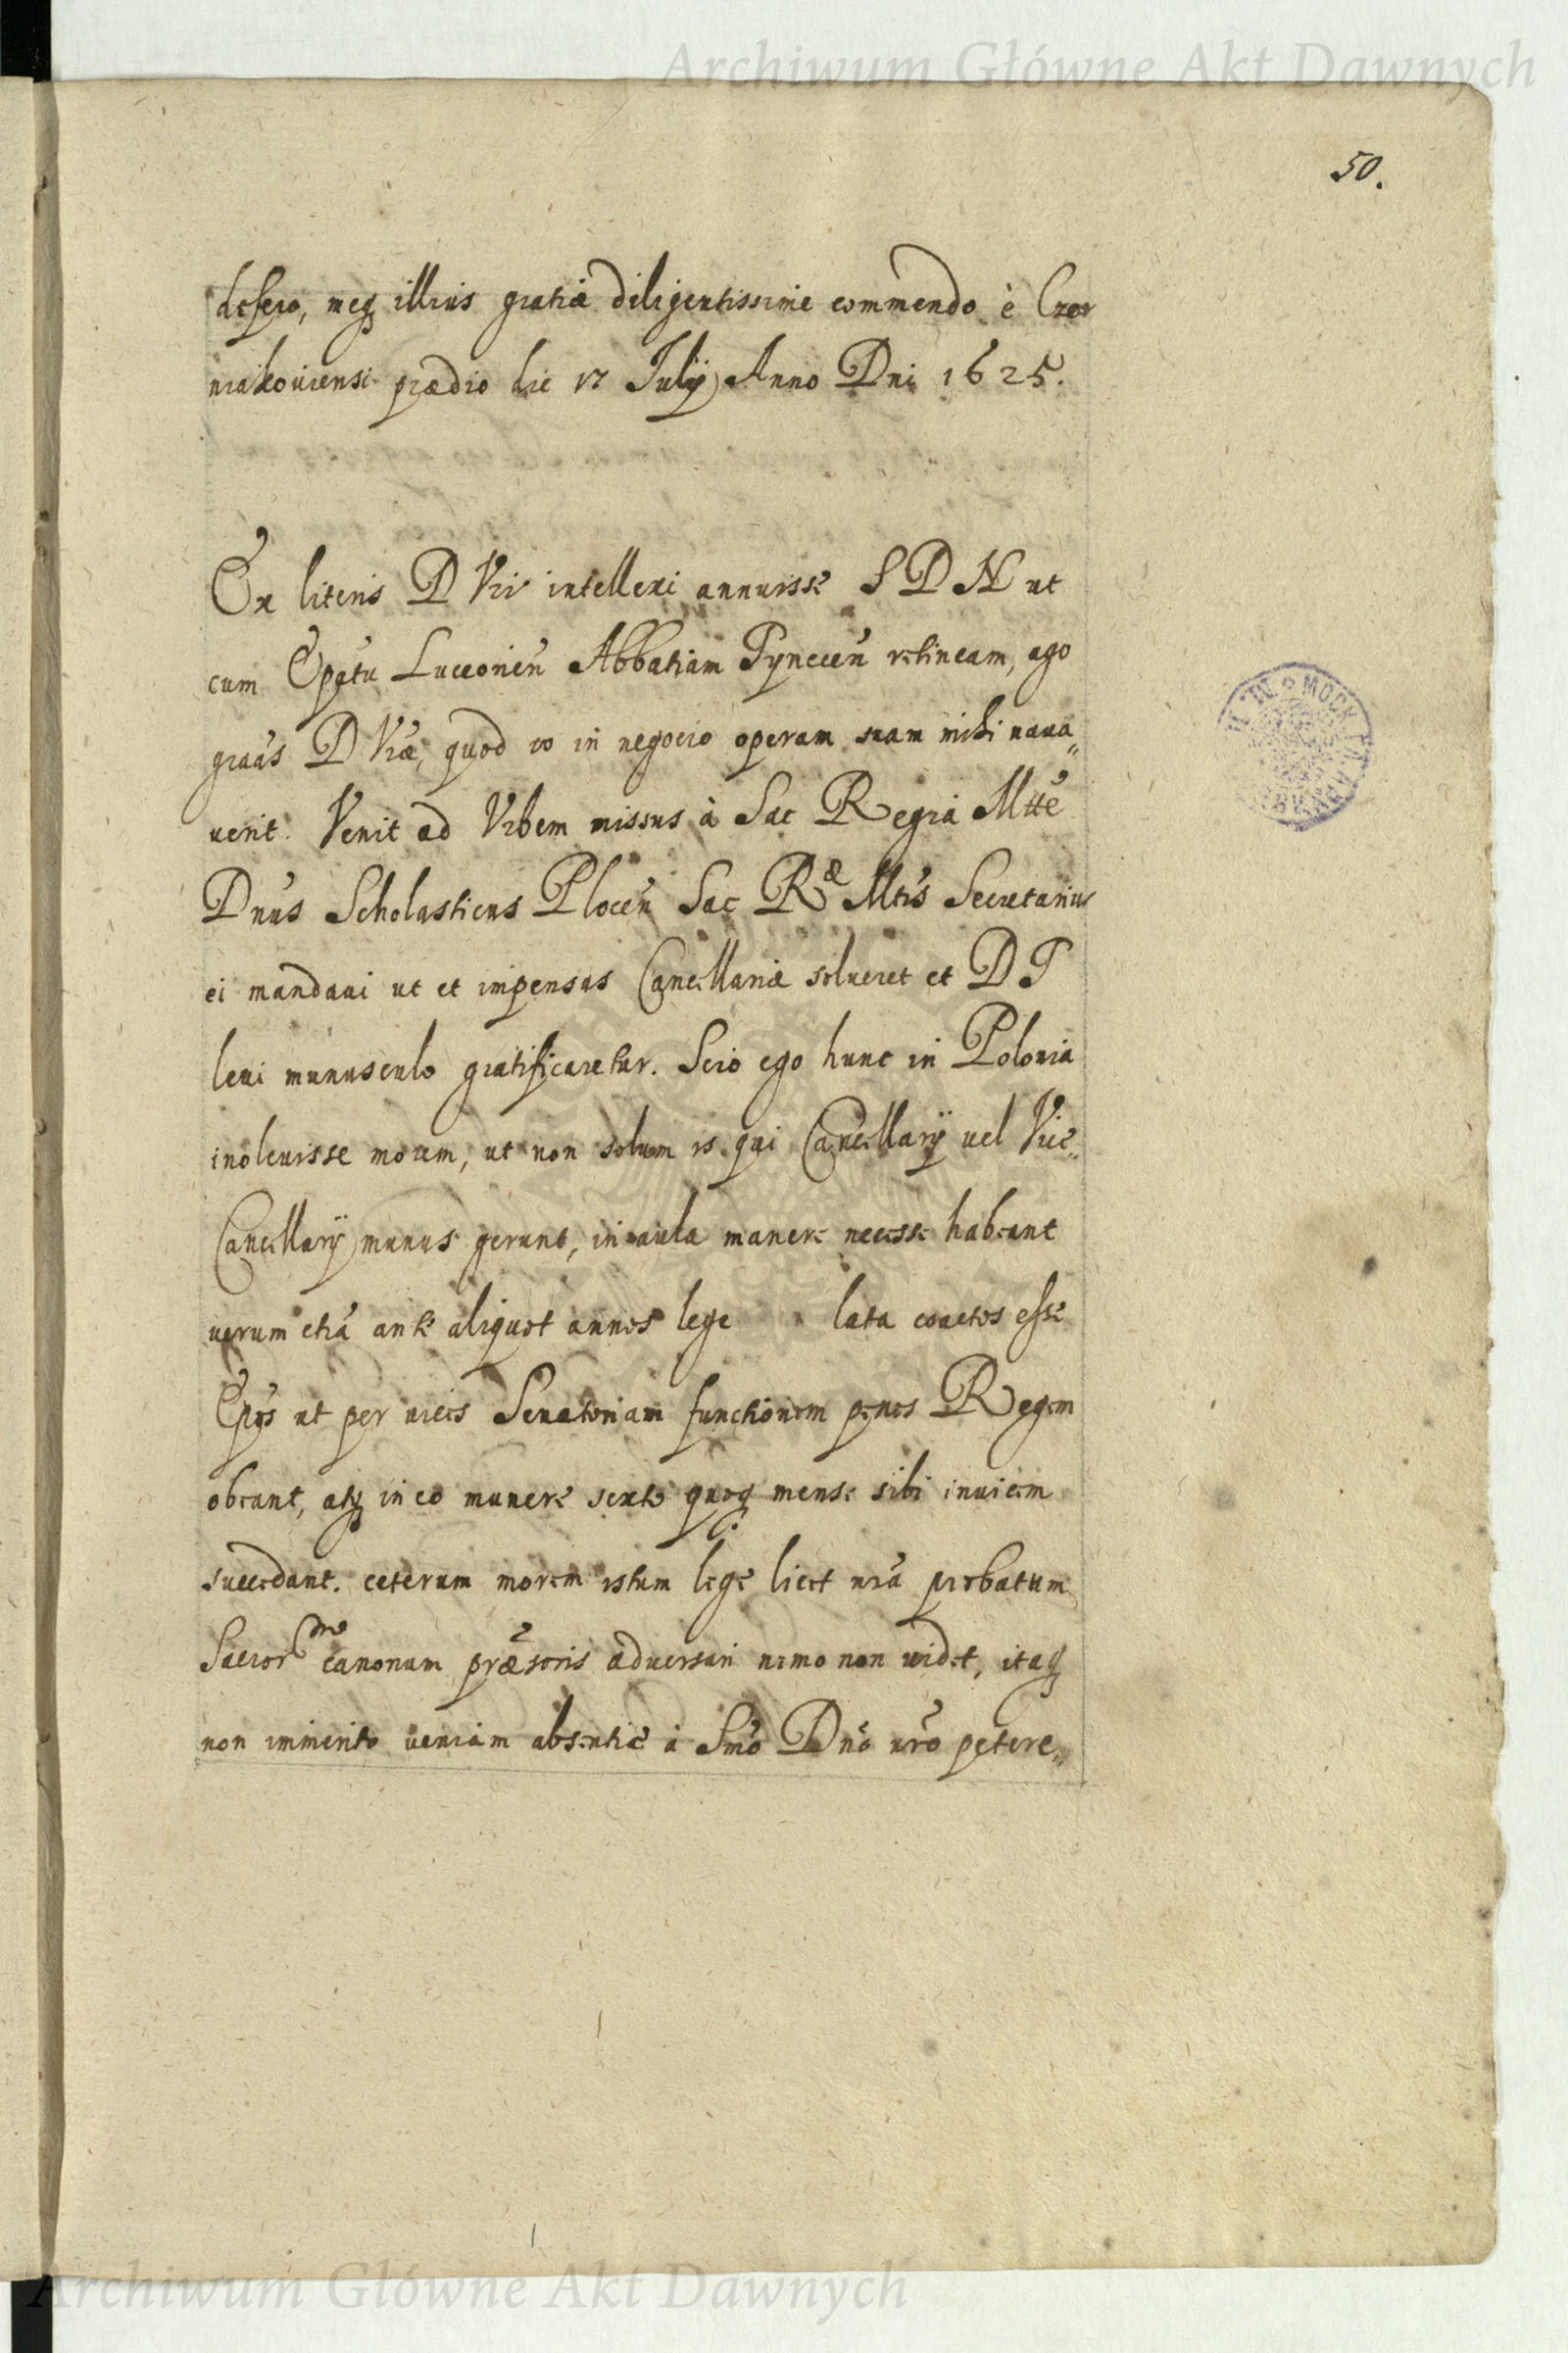 Archiwum Główne Akt Dawnych
50.
defero, meq illius gratiæ diligentissime commendo è Czer
niakoviensi prædio die 17 Julÿ Anno Dni 1625.
Ex literis D Vrӕ intellexi annuisse S D N ut
cum Epatu Luceorien Abbatiam Tynecen retineam, ago
graas D Vræ, quod eo in negocio operam suam mihi naua„
uerit. Venit ad Vrbem missus à Sac Regia Mtte
Dnus Scholasticus Plocen Sac Ræ Mtis Secretarius
ei mandaui ut et impensas Cancellariæ solueret et D T
leui munusculo gratificaretur. Scio ego hunc in Polonia
inoleuisse morem, ut non solum is qui Cancellarÿ uel Vice„
Cancellarÿ munus gerunt, in aula manere necesse habeant
uerum etiã ante aliquot annos lege lata coactos esse
Epos ut per uices Senatoriam functionem penes Regem
obeant, atq in eo munere sexto quoq mense sibi inuicem
succedant. ceterum morem istum lege licet nra probatum
Sacror canonum præscris aduersari nemo non uidet, itaq
non immerito ueniam absentiæ à Smo Dno nro petere„
MOCK
Archiwum Główne Akt Dawnych